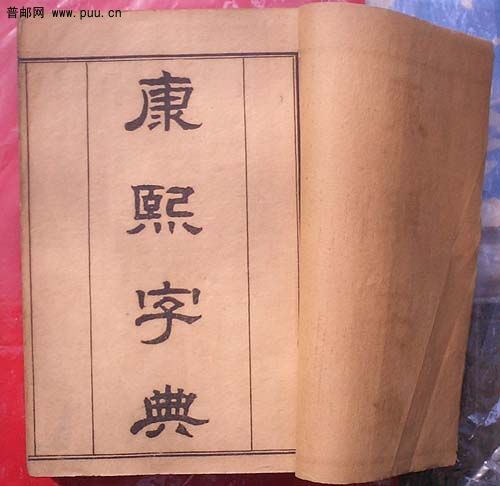 普邮网 www.puu.cn
康熙字典